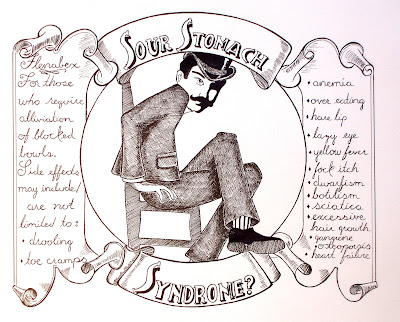 SOUR STOMACH
Flenabex
For those
who require
alliviation
of blocked
bowls.
Side effects
may include/
are not
limited to:
• drooling
• toe cramps
• anemia
• over eating
• hare lip
• lazy eye
• yellow fever
• jock itch
• dwarfism
• botulism
• sciatica
• excessive
hair growth
• gangrene
• osteoporosis
• heart failure
SYNDROME?